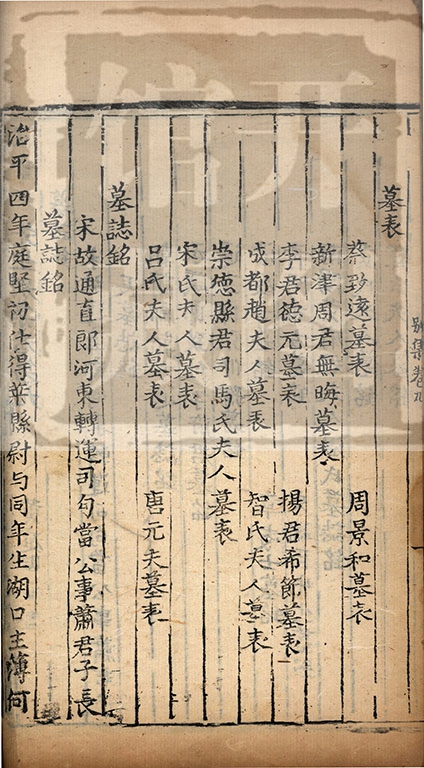 別集卷九
墓表
蔡致遠墓表 周景和墓表
新津周君無晦墓表
李君德元墓表 楊君希節墓表
成都趙夫人墓表 智氏夫人墓表
崇德縣君司馬氏夫人墓表
宋氏夫人墓表
呂氏夫人墓表 唐元夫墓表
墓誌銘
宋故通直郎河東轉運司勾當公事蕭君子長
墓誌銘
治平四年庭堅初仕得葉縣尉与同年生湖口主簿何